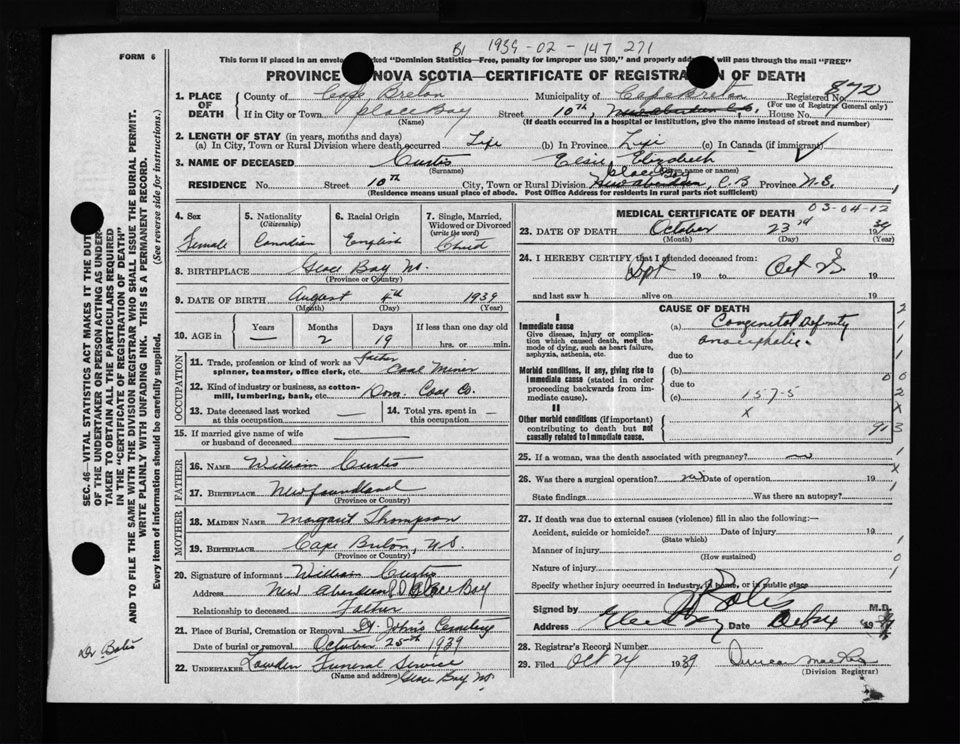 B1 1939-02-147 271
FORM 6
This form if placed in an envelo ked "Dominion Statistics—Free, penalty for improper use $300," and properly addre ill pass through the mail "FREE"
PROVINCE NOVA SCOTIA—CERTIFICATE OF REGISTRATION OF DEATH
1. PLACE OF DEATH
County of Cape Breton Municipality of Cape Breton Registered No. 872
(For use of Registrar General only)
If in City or Town Glace Bay Street 10th, House No. 1
(Name) (If death occurred in a hospital or institution, give the name instead of street and number)
2. LENGTH OF STAY (in years, months and days)
(a) In City, Town or Rural Division where death occurred Life (b) In Province Life (c) In Canada (if immigrant)
3. NAME OF DECEASED Curtis Elsie Elizabeth
(Surname) (Given name or names)
Glace Bay
RESIDENCE No. Street 10th City, Town or Rural Division New Aberdeen, C.B Province N.S.
(Residence means usual place of abode. Post Office Address for residents in rural parts not sufficient)
4. Sex Female
5. Nationality (Citizenship) Canadian
6. Racial Origin English
7. Single, Married, Widowed or Divorced (write the word) Child
8. BIRTHPLACE Glace Bay NS.
(Province or Country)
9. DATE OF BIRTH August 4th 1939
(Month) (Day) (Year)
10. AGE in Years — Months 2 Days 19 If less than one day old hrs. or min.
OCCUPATION
11. Trade, profession or kind of work as spinner, teamster, office clerk, etc. Father Coal Miner
12. Kind of industry or business, as cotton-mill, lumbering, bank, etc. Dom. Coal Co.
13. Date deceased last worked at this occupation —
14. Total yrs. spent in this occupation —
15. If married give name of wife or husband of deceased —
FATHER
16. NAME William Curtis
17. BIRTHPLACE Newfoundland
(Province or Country)
MOTHER
18. MAIDEN NAME Margaret Thompson
19. BIRTHPLACE Cape Breton, NS.
(Province or Country)
20. Signature of informant William Curtis
Address New Aberdeen Glace Bay
Relationship to deceased Father
21. Place of Burial, Cremation or Removal St. John's Cemetery
Date of burial or removal October 25th 1939
22. UNDERTAKER Lowden Funeral Service
(Name and address) Glace Bay NS
MEDICAL CERTIFICATE OF DEATH 03-04-12
23. DATE OF DEATH October 23rd 1939
(Month) (Day) (Year)
24. I HEREBY CERTIFY that I attended deceased from:
Sept 19 to Oct 23 19
and last saw h alive on 19
CAUSE OF DEATH
I
Immediate cause
Give disease, injury or complication which caused death, not the mode of dying, such as heart failure, asphyxia, asthenia, etc.
(a) Congenital
due to
Morbid conditions, if any, giving rise to immediate cause (stated in order proceeding backwards from immediate cause).
(b)
due to
(c) 157-5
II
Other morbid conditions (if important) contributing to death but not causally related to immediate cause.
x
25. If a woman, was the death associated with pregnancy? no
26. Was there a surgical operation? no Date of operation 19
State findings Was there an autopsy?
27. If death was due to external causes (violence) fill in also the following:—
Accident, suicide or homicide? Date of injury 19
(State which)
Manner of injury
(How sustained)
Nature of injury
Specify whether injury occurred in industry, in home, or in public place
Signed by Bates M.D.
Address Glace Bay Date 19
28. Registrar's Record Number
29. Filed Oct 24 1939 Duncan
(Division Registrar)
SEC. 46—VITAL STATISTICS ACT MAKES IT THE DUT
OF THE UNDERTAKER OR PERSON ACTING AS UNDER-
TAKER TO OBTAIN ALL THE PARTICULARS REQUIRED
IN THE "CERTIFICATE OF REGISTRATION OF DEATH"
AND TO FILE THE SAME WITH THE DIVISION REGISTRAR WHO SHALL ISSUE THE BURIAL PERMIT.
WRITE PLAINLY WITH UNFADING INK. THIS IS A PERMANENT RECORD.
Every item of information should be carefully supplied. (See reverse side for instructions.)
Dr Bates